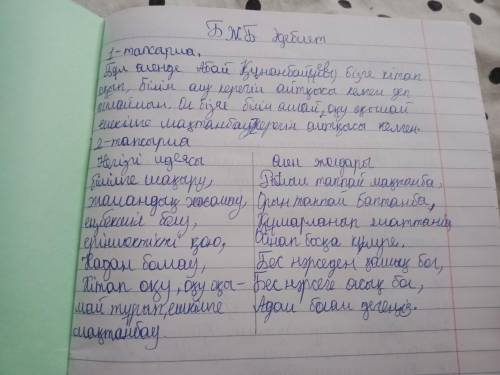 БЖБ Әдебиет
1-тапсырма.
Бұл өлеңде Абай Құнанбайұлы бізге кітап
оқып, білім алу керегін айтқысы келген деп
ойлаймын. Ол бізге білім алмай, оқу оқымай
ешкімге мақтанбау керегін айтқысы келген.
2-тапсырма
Негізгі идеясы
білімге шақыру,
жамандық жасамау,
еңбекшіл болу,
ерішоктікті қою,
Надан болмау,
Кітап оқу, оқу оқы-
май тұрып, ешкімге
мақтанбау
Өлең жолдары
Ғылым таппай мақтанба,
Орын таппай баптанба,
Құмарланып шаттанба,
Ойнап босқа күлуге.
Бес нәрседен қашық бол,
Бес нәрсеге асық бол,
Адам болам деңеңіз.